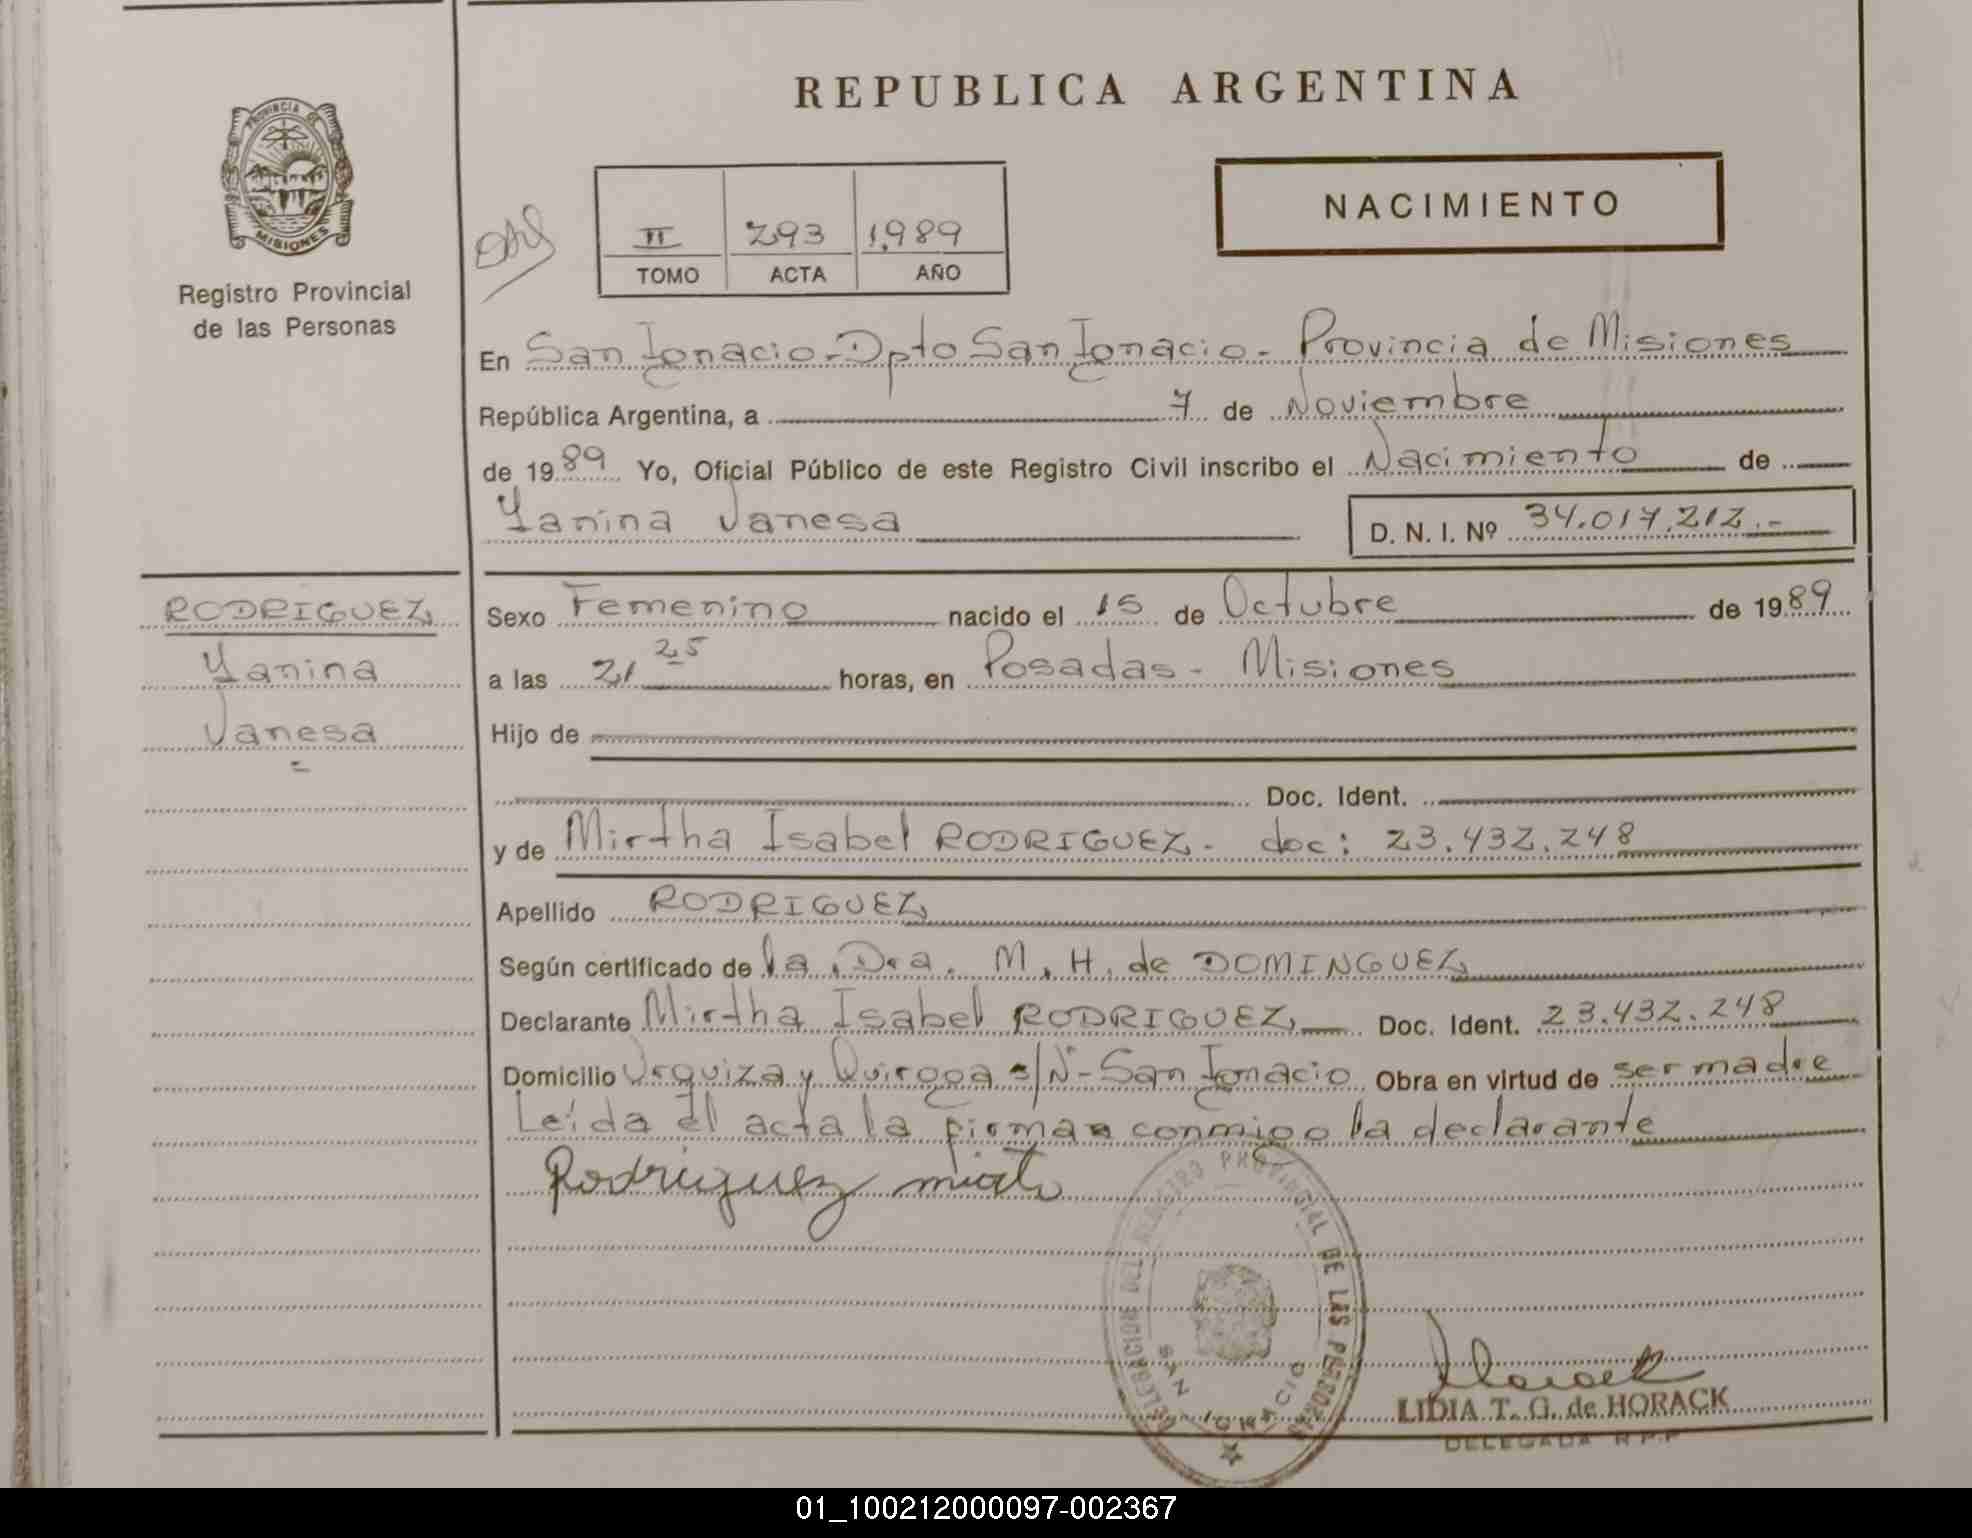 REPUBLICA ARGENTINA
PROVINCIA DE MISIONES
Registro Provincial
de las Personas
NACIMIENTO
II 293 1.989
TOMO ACTA AÑO
En San Ignacio - Dpto San Ignacio - Provincia de Misiones
República Argentina, a 7 de Noviembre
de 1989 Yo, Oficial Público de este Registro Civil inscribo el Nacimiento de
Yanina Vanesa D. N. I. Nº 34.017.212.-
RODRIGUEZ
Yanina
Vanesa
Sexo Femenino nacido el 15 de Octubre de 1989
a las 21 25 horas, en Posadas - Misiones
Hijo de
Doc. Ident.
y de Mirtha Isabel RODRIGUEZ - doc: 23.432.248
Apellido RODRIGUEZ
Según certificado de la Dra. M. H. de DOMINGUEZ
Declarante Mirtha Isabel RODRIGUEZ Doc. Ident. 23.432.248
Domicilio Urquiza y Quiroga s/Nº - San Ignacio Obra en virtud de ser madre
Leída el acta la firman conmigo la declarante
Rodriguez mirta
DELEGACION DEL REGISTRO PROVINCIAL DE LAS PERSONAS
SAN IGNACIO
LIDIA T. G. de HORACK
DELEGADA R.P.P
01_100212000097-002367